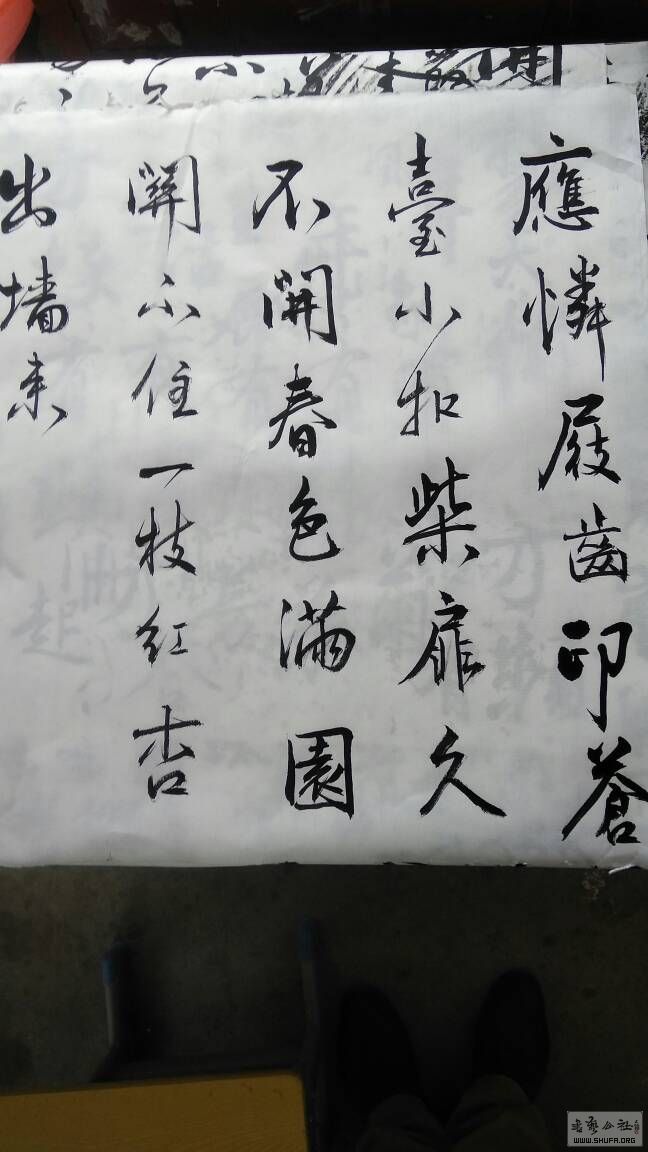 應憐屐齒印蒼
臺小扣柴扉久
不開春色滿園
関不住一枝紅杏
出墙来
書藝公社
WWW.SHUFA.ORG